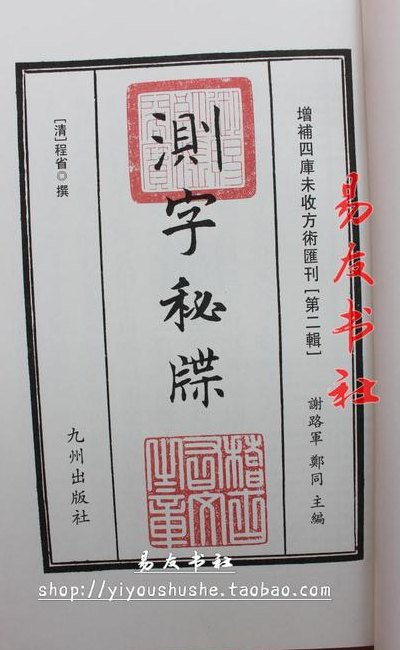 增補四庫未收方術匯刊[第二輯]
謝路軍 鄭同 主編
測字秘牒
[清]程省◎撰
九州出版社
易友书社
易友书社
shop://yiyoushushe.taobao.com/